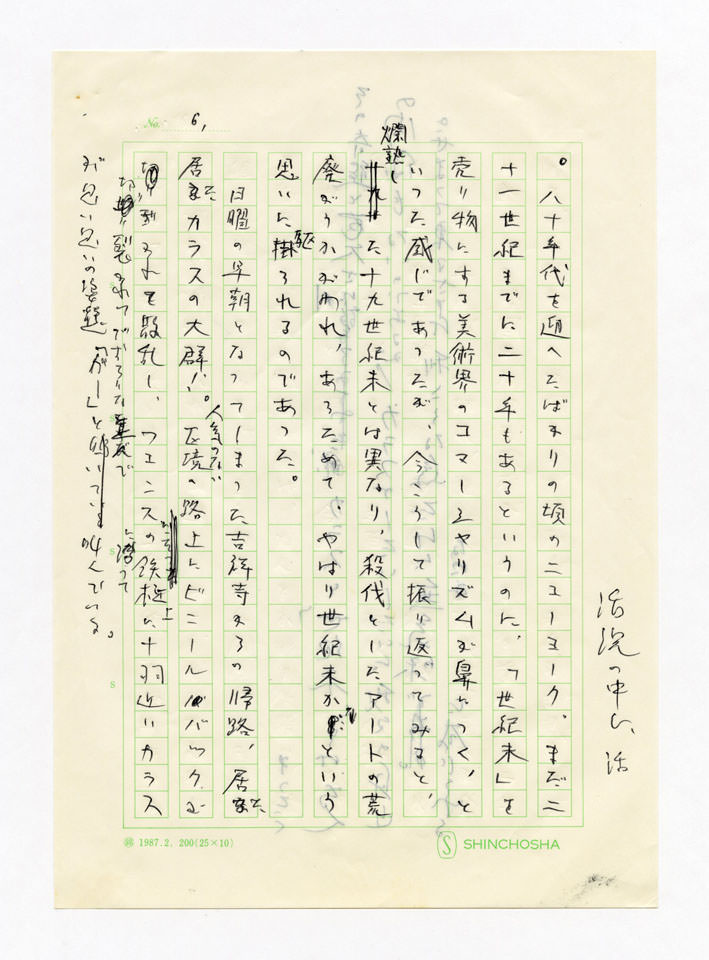 No. 6,
活況の中に、活
。八十年代を迎へたばかりの頃のニューヨーク。まだ二
十一世紀までに二十年もあるというのに、「世紀末」を
売り物にする美術界のコマーシャリズムが鼻につく、と
いった感じであったが、今こうして振り返ってみると、
爛熟し
た十九世紀末とは異なり、殺伐としたアートの荒
廃がうかがわれ、あらためて、やはり世紀末か…という
思いに駆られるのであった。
日曜の早朝となってしまった吉祥寺からの帰路、居た、
居たカラスの大群!。人気のない区境の路上にビニールバックが
散乱し、フェンスの鉄柵上に十羽近いカラス
が思い思いの姿態で
叫んでいる。
SHINCHOSHA
1987.2. 200(25×10)